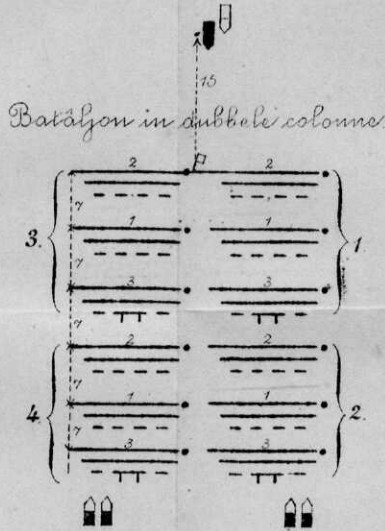 15
Batâljon in dubbele colonne.
2 2
7
3. 1 1 1.
7
3 3
7
2 2
7
4. 1 1 2.
7
3 3